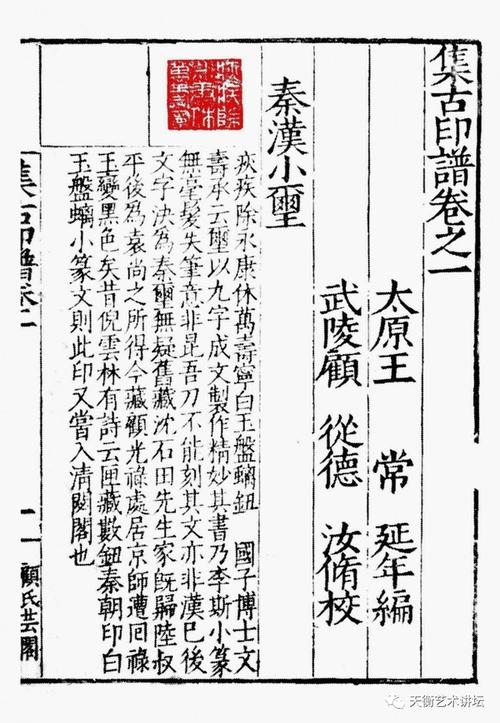 集古印譜卷之一
太原王 常 延年編
武陵顧 從德 汝脩校
秦漢小璽
疢疾除永康休萬壽寧白玉盤螭鈕 國子博士文
壽承云璽以九字成文製作精妙其書乃李斯小篆
無毫髮失筆意非昆吾刀不能刻其文亦非漢已後
文字決為秦璽無疑舊藏沈石田先生家旣歸陸叔
平後為袁尚之所得今藏顧光祿處居京師遭回祿
玉變黑色矣昔倪雲林有詩云匣藏數鈕秦朝印白
玉盤螭小篆文則此印又當入清閟閣也
集古印譜卷一
一
顧氏芸閣
天衡艺术讲坛